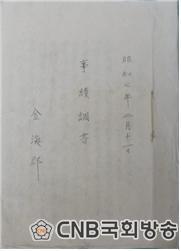 昭和七年四月十一日
事績調書
金海郡
CNB국회방송